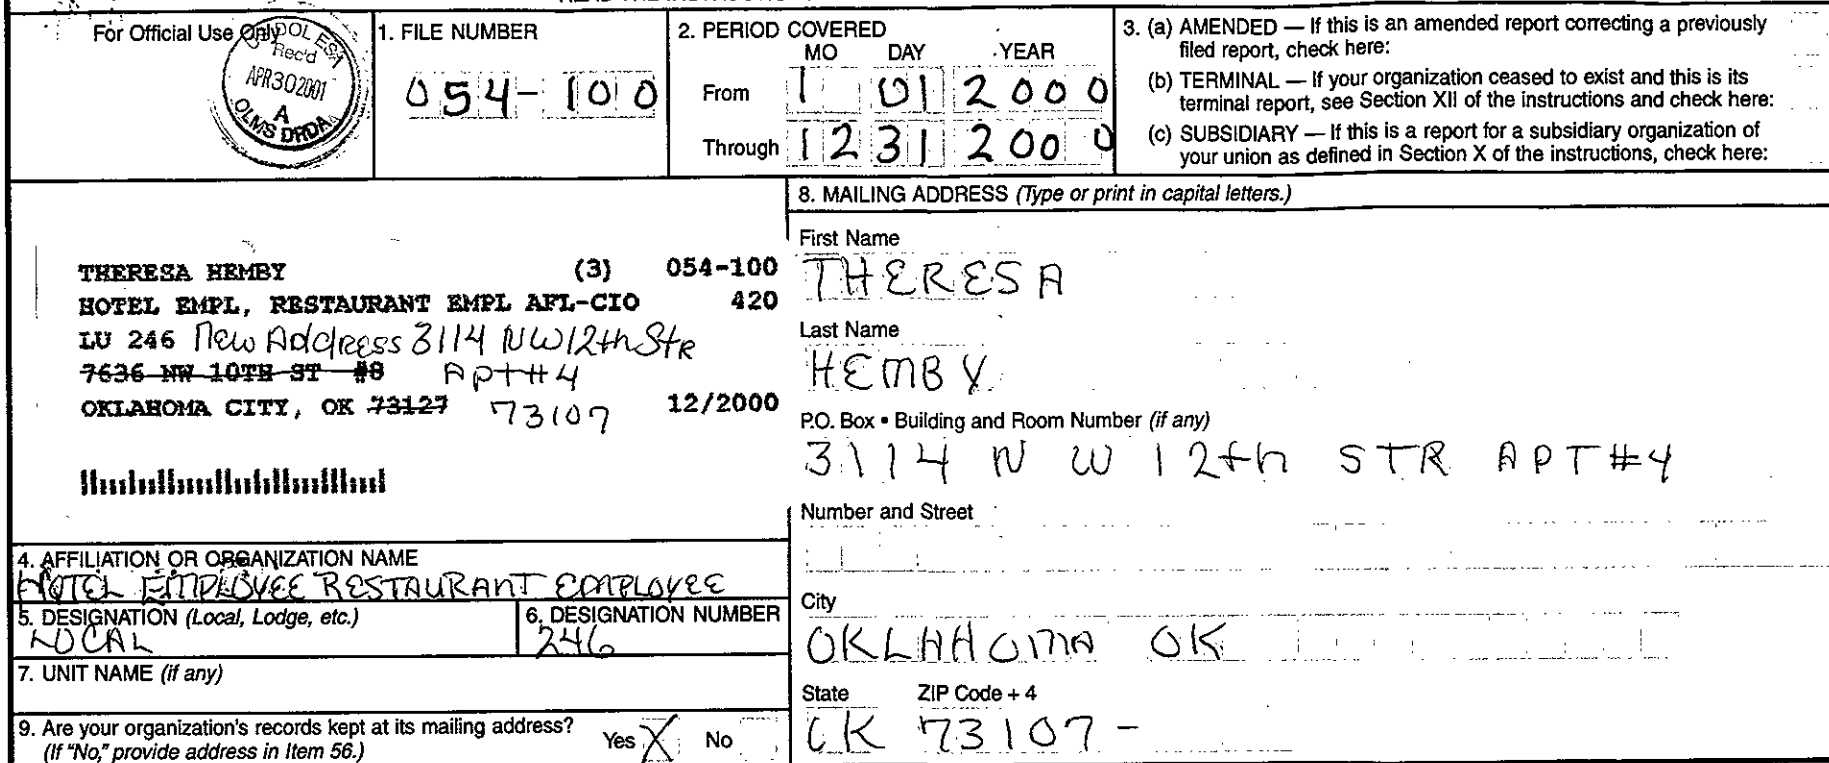 For Official Use Only
DOL ESA
Rec'd
APR 30 2001
A
OLMS DRDA
1. FILE NUMBER
054-100
2. PERIOD COVERED
MO DAY YEAR
From 1 01 2000
Through 12 31 2000
3. (a) AMENDED — If this is an amended report correcting a previously
filed report, check here:
(b) TERMINAL — If your organization ceased to exist and this is its
terminal report, see Section XII of the instructions and check here:
(c) SUBSIDIARY — If this is a report for a subsidiary organization of
your union as defined in Section X of the instructions, check here:
THERESA HEMBY (3) 054-100
HOTEL EMPL, RESTAURANT EMPL AFL-CIO 420
LU 246 New Address 3114 NW 12th StR
7636 NW 10TH ST #8 Apt#4
OKLAHOMA CITY, OK 73127 73107 12/2000
4. AFFILIATION OR ORGANIZATION NAME
HOTEL EMPLOYEE RESTAURANT EMPLOYEE
5. DESIGNATION (Local, Lodge, etc.)
LOCAL
6. DESIGNATION NUMBER
246
7. UNIT NAME (if any)
9. Are your organization's records kept at its mailing address?
(If "No," provide address in Item 56.)
Yes X No
8. MAILING ADDRESS (Type or print in capital letters.)
First Name
THERESA
Last Name
HEMBY
P.O. Box • Building and Room Number (if any)
3114 N W 12th STR APT#4
Number and Street
City
OKLAHOMA OK
State ZIP Code + 4
OK 73107 -